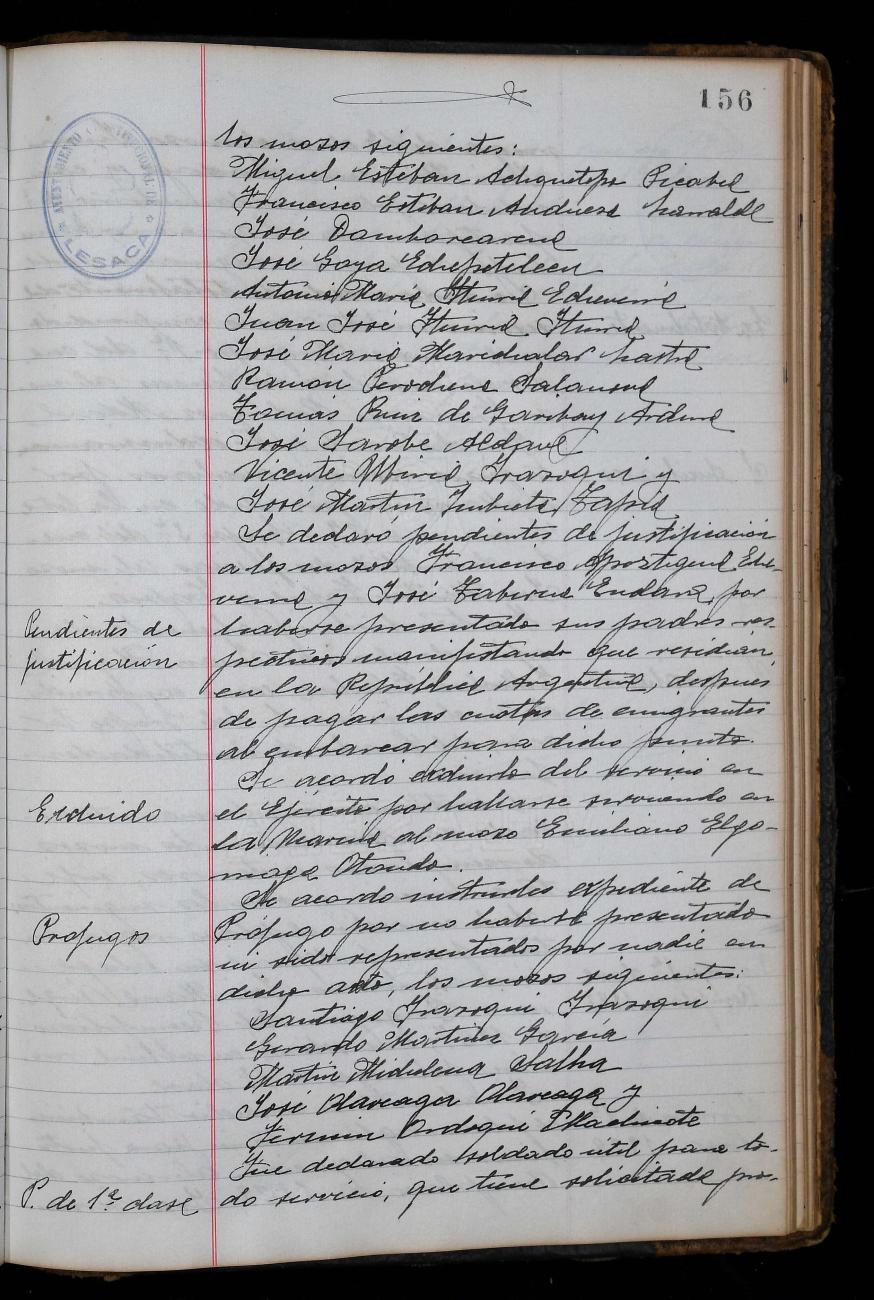 156
AYUNTAMIENTO CONSTITUCIONAL DE
LESACA
los mozos siguientes:
Miguel Esteban Picabea
Francisco Esteban Andueza Larralde
José Dambarearena
José Goya Echepetelecu
Antonio María Iturria Echeverría
Juan José Iturria Iturria
José María Marichalar Lastra
Ramón Perochena Salanova
Tomás Ruiz de Garibay
José Sarobe Aldave
Vicente Ubiria Irazoqui y
José Martín Zubieta Tapia
Se declaró pendientes de justificación
a los mozos Francisco Apezteguia Eche-
verria y José Taberna Endara, por
Pendientes de
justificación
haberse presentado sus padres res-
pectivos manifestando que residían
en la República Argentina, después
de pagar las cuotas de emigrantes
al embarcar para dicho punto.
Se acordó excluirle del servicio en
Excluido
el Ejército por hallarse sirviendo en
la Marina al mozo Emiliano Elgo-
rriaga Otondo.
Se acordó instruirles expediente de
Prófugos
Prófugo por no haberse presentado
ni sido representados por nadie en
dicho acto, los mozos siguientes:
Santiago Irazoqui Irazoqui
Gerardo Martinez García
Martín Michelena
José Olaveaga Olaveaga y
Fermin Ordoqui
Fue declarado soldado útil para to-
P. de 1ª clase
do servicio, que tiene solicitada pró-